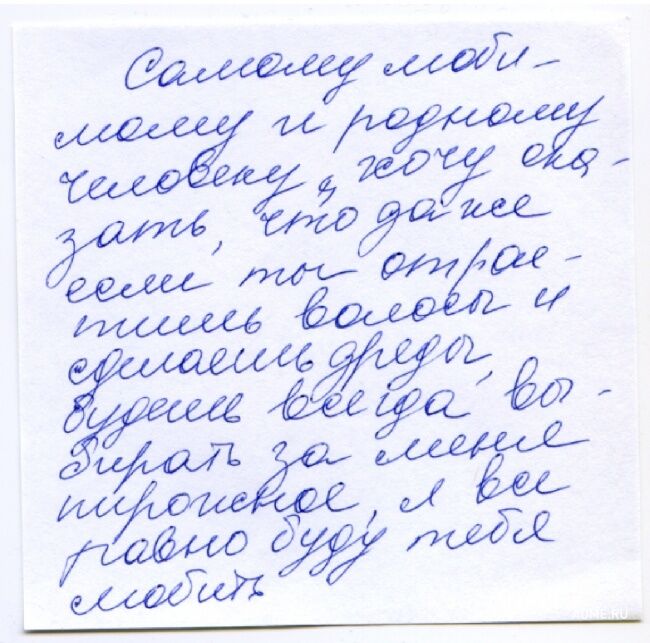 Самому люби-
мому и родному
человеку, я хочу ска-
зать, что даже
если ты отрас-
тишь волосы и
сделаешь дреды,
будешь всегда вы-
бирать за меня
пирожное, я все
равно буду тебя
любить